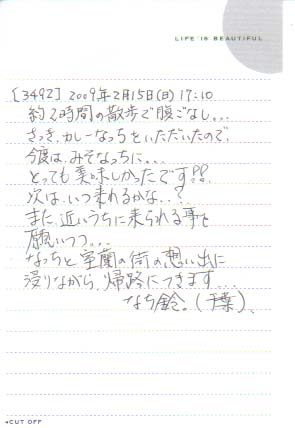 LIFE IS BEAUTIFUL
[3492] 2009年2月15日(日) 17:10
約2時間の散歩で腹ごなし。。。
さっき、カレーなっちをいただいたので、
今度は、みそなっちに...
とっても美味しかったです!!
次は、いつ来れるかな..?
また、近いうちに来られる事を
願いつつ...
なっちと室蘭の街の想い出に
浸りながら、帰路につきます...
なち鈴。(千葉)、
◂CUT OFF